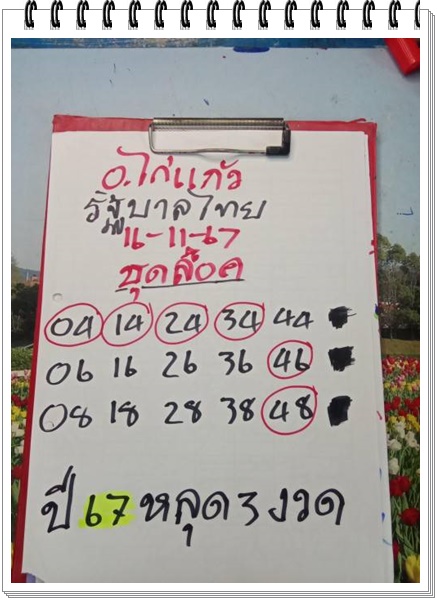 อ.ไก่แก้ว
รัฐบาลไทย
11-11-67
ชุดล็อค
04 14 24 34 44
06 16 26 36 46
08 18 28 38 48
ปี 67 หลุด 3 งวด